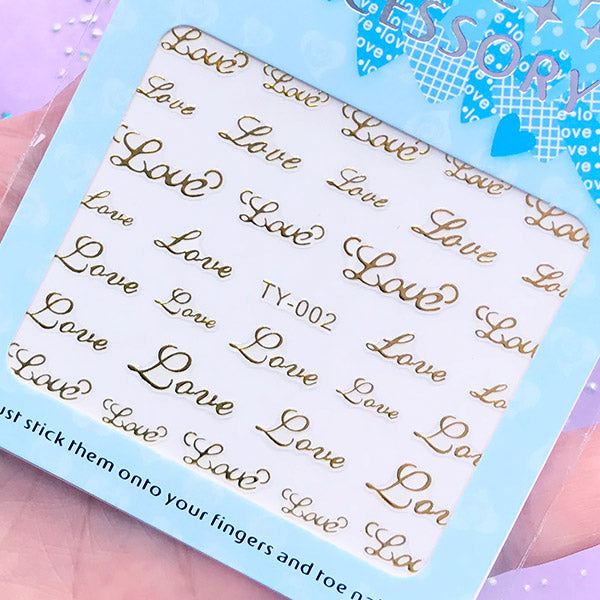 CESSORY
love
ove
e•lo
ove
Love Love Love Love Love
Love Love Love Love Lov
Love Love Love Lov
Love Love TY-002 Love Lo
Love Love Love Love Lov
Love Love Love Lov
Love Love Love Love Lo
ust stick them onto your fingers and toe na